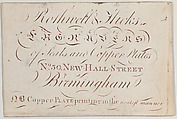 Rothwell & Hicks
ENGRAVERS
of Seals and Copper Plates
No. 50, New-Hall-Street
Birmingham
NB Copper Plate printing in the neatest manner